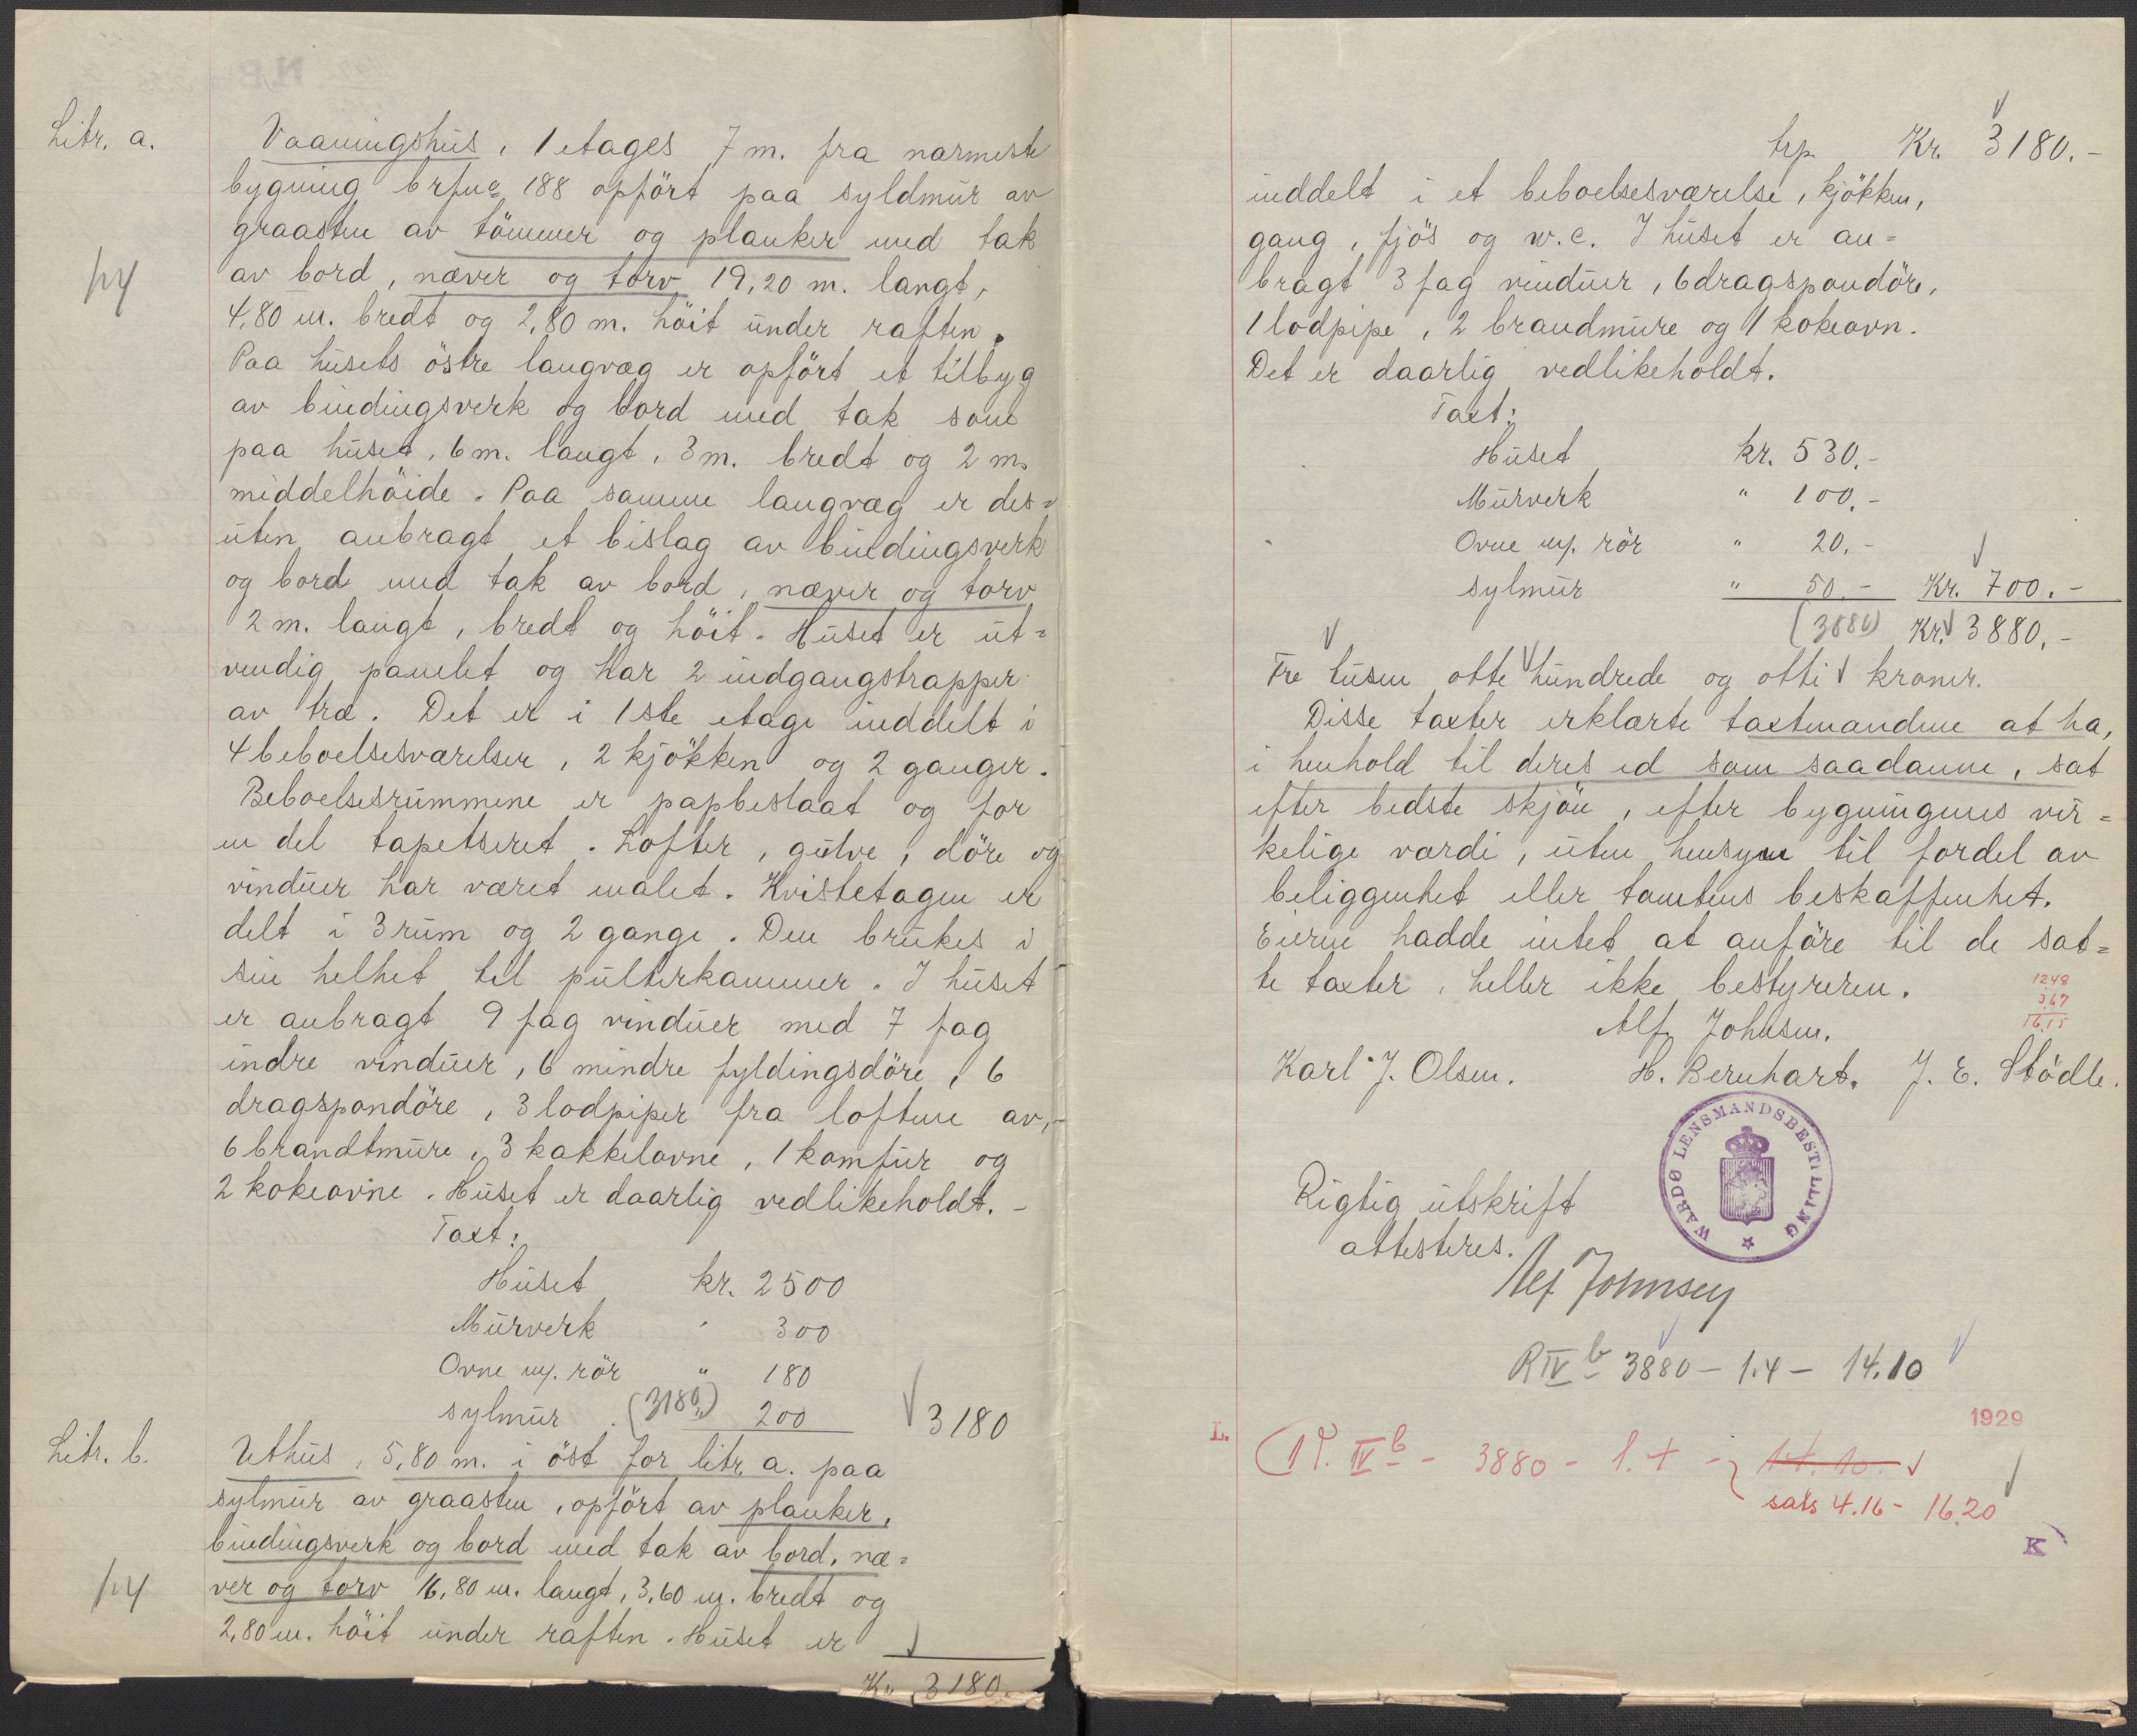 Litr. a.
Vaaningshus, 1 etages 7 m. fra nærmeste
bygning brfnr 188 opført paa syldmur av
graasten av tømmer og planker med tak
av bord, næver og torv 19,20 m. langt,
1.4
4,80 m. bredt og 2,80 m. høit under raften.
Paa husets østre langvæg er opført et tilbyg
av bindingsverk og bord med tak som
paa huset, 6 m. langt, 3 m. bredt og 2 m.
middelhøide. Paa samme langvæg er des=
uten anbragt et bislag av bindingsverk
og bord med tak av bord, næver og torv
2 m. langt, bredt og høit. Huset er ut=
vendig panelet og har 2 indgangstrapper
av træ. Det er i 1ste etage inddelt i
4 beboelsesværelser, 2 kjøkken og 2 ganger.
Beboelsesrummene er papbeslaat og for
en del tapetseret. Lofter, gulve, døre og
vinduer har været malet. Kvistetagen er
delt i 3 rum og 2 gange. Den brukes i
sin helhet til pulterkammer. I huset
er anbragt 9 fag vinduer med 7 fag
indre vinduer, 6 mindre fyldingsdøre, 6
dragspondøre, 3 lodpiper fra loftene av,-
6 brandtmure, 3 kakkelovne, 1 komfur og
2 kokeovne. Huset er daarlig vedlikeholdt. -
Taxt:
Huset kr. 2500
Murverk " 300
Ovne m/. rör " 180
Sylmur (3180) " 200 3180
Litr. b.
Uthus, 5,80 m. i öst for litr. a. paa
sylmur av graasten, opført av planker,
bindingsverk og bord med tak av bord, næ=
1.4
ver og torv 16,80 m. langt, 3,60 m. bredt og
2,80 m. høit under raften. Huset er
Kr. 3180.-
trp. Kr. 3180.-
inddelt i et beboelsesværelse, kjøkken,
gang, fjös og w.c. I huset er an=
bragt 3 fag vinduer, 6 dragspondöre,
1 lodpipe, 2 brandmure og 1 kokeovn.
Det er daarlig vedlikeholdt.
Taxt:
Huset kr. 530.-
Murverk " 100.-
Ovne m/. rör " 20.-
Sylmur " 50.- Kr. 700.-
(3880) Kr. 3880.-
Tre tusen otte hundrede og otti kroner.
Disse taxter erklærte taxtmændene at ha,
i henhold til deres ed som saadanne, sat
efter bedste skjön, efter bygningenes vir=
kelige værdi, uten hensyn til fordel av
beliggenhet eller tomtens beskaffenhet.
Eieren hadde intet at anføre til de sat=
te taxter, heller ikke bestyreren.
1248
367
16.15
Alf Johnsen.
Karl J. Olsen. H. Bernhart. J. E. Stödle.
WARDØ LENSMANDSBESTILLING
Rigtig utskrift
attesteres.
Alf Johnsen
R IV b 3880 - 1.4 - 14.10
1929
L.
(1 P. IV b - 3880 - 1.4 - 14.10.
sats 4.16 - 16.20
K